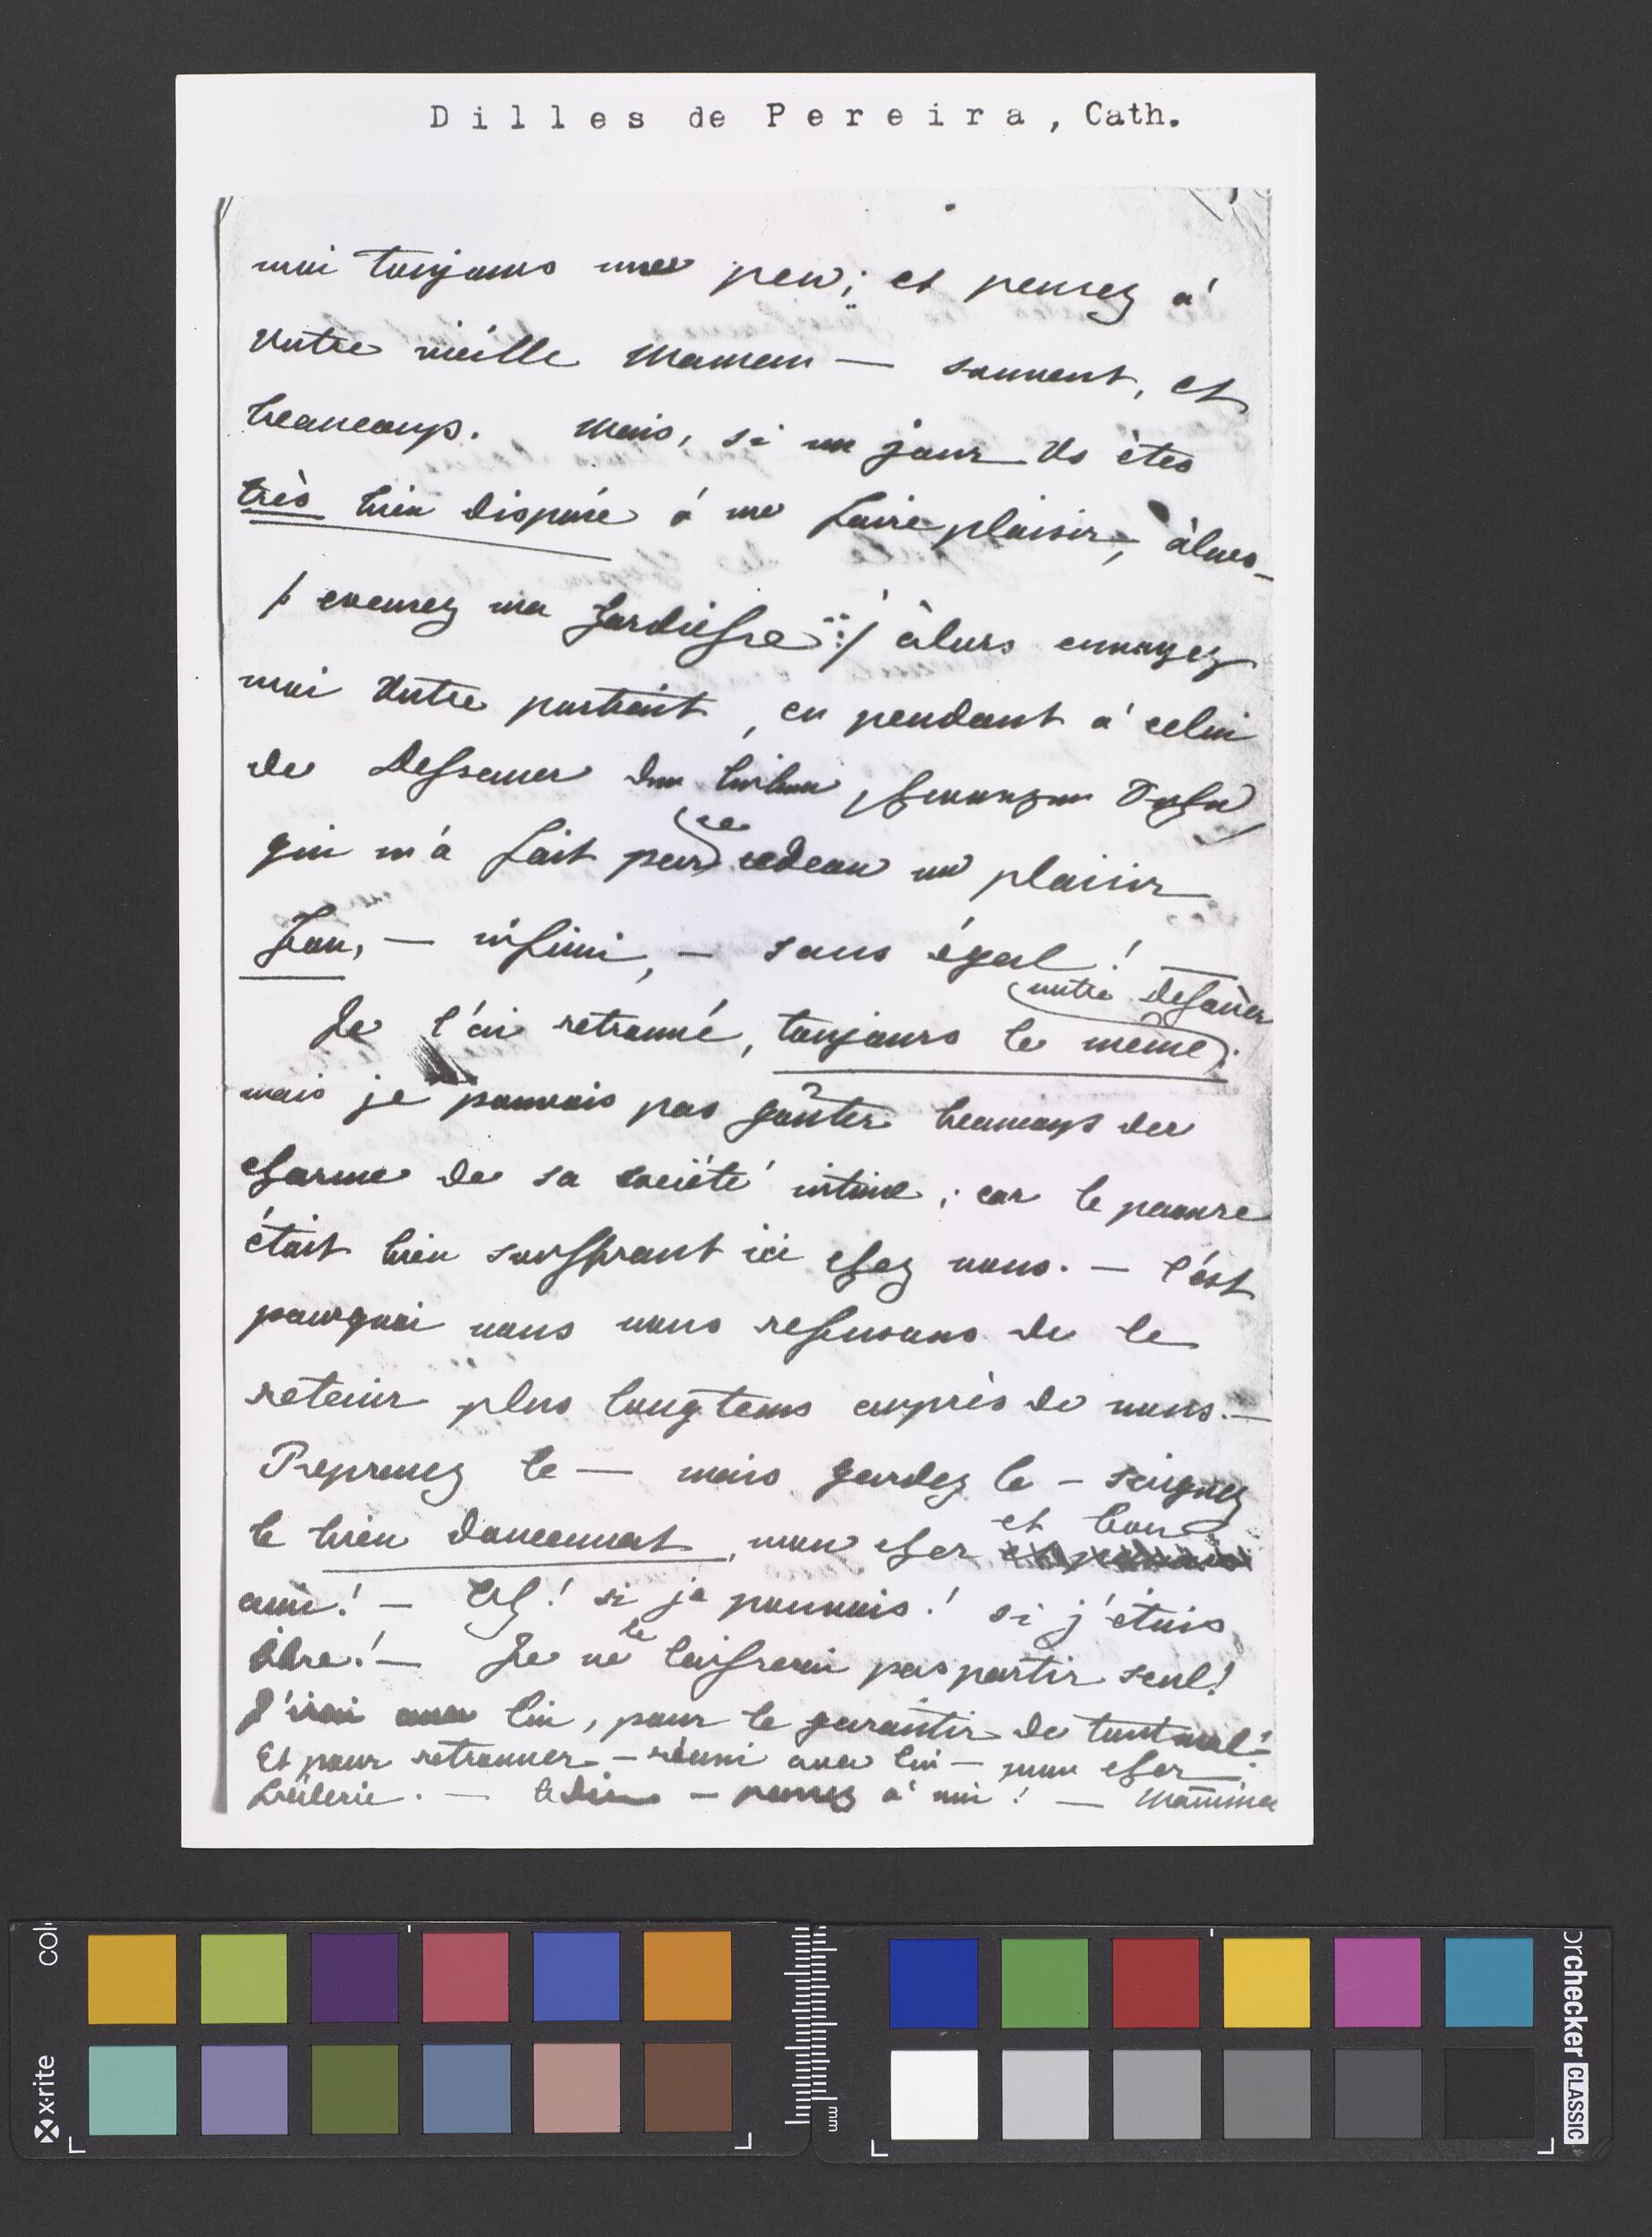 Dilles de Pereira, Cath.
moi toujours un peu; et pensez à
Votre vieille Maman — souvent, et
beaucoup. Mais, si un jour Vs êtes
très bien disposé à me faire plaisir, àlors-
/: excusez ma hardiesse :/ àlors envoyez
moi Votre portrait, en pendant à celui
de Dessauer
qui m'a fait par ce cadeau un plaisir
fou, — infini, — sans égal! —
notre Dessauer
Je l'ai retrouvé, toujours le même;
mais je pouvais pas goûter beaucoup du
charme de sa société intime; car le pauvre
était bien souffrant ici chez nous. — C'est
pourquoi nous nous refusons de le
retenir plus longtems auprès de nous. —
Reprenez le — mais gardez le — soignez
le bien doucement, mon cher et bon
ami! — Ach! si je pouvais! si j'étais
libre! — Je ne le laisserai pas partir seul!
J'irai avec lui, pour le garantir de tout mal!
Et pour retrouver — réuni avec lui — mon cher
— adieu — pensez à moi! — Mamina
colorchecker CLASSIC
x-rite
mm